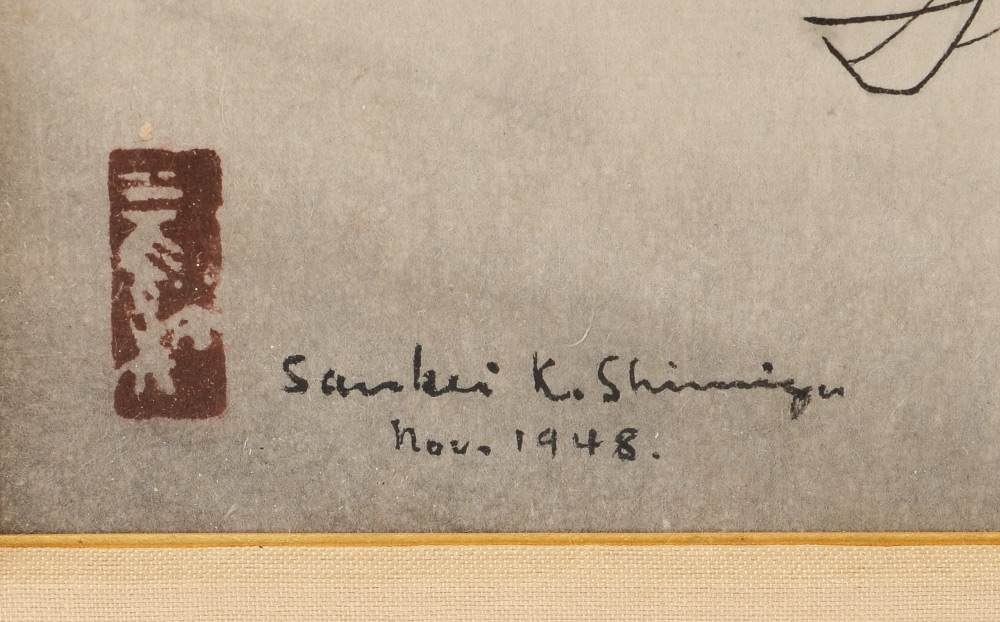 Sankei K. Shimizu
Nov. 1948.